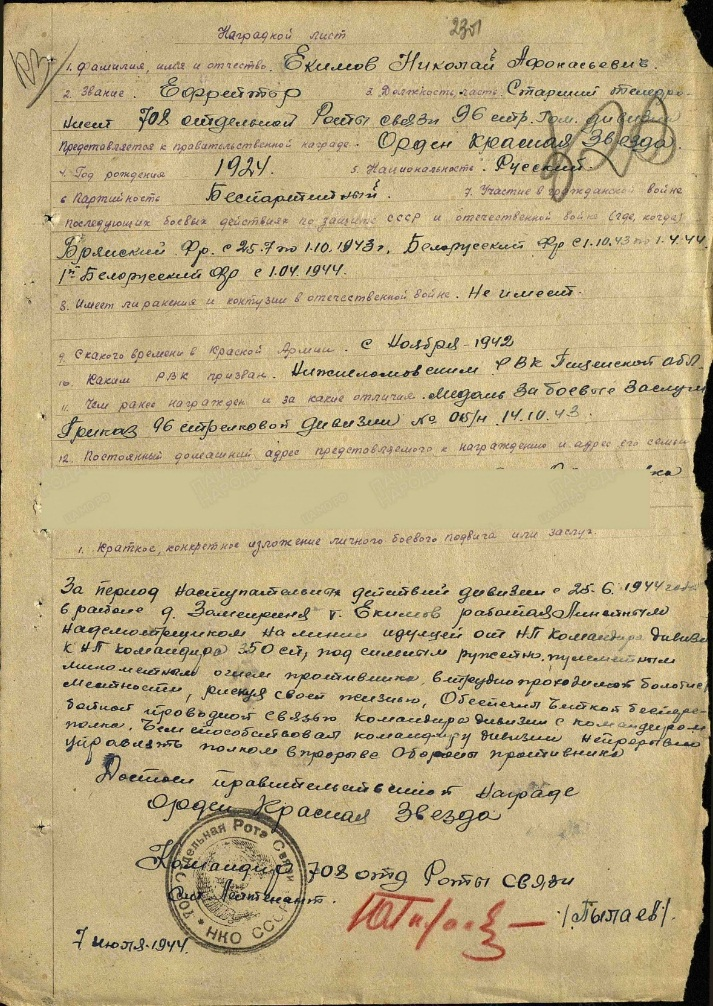 Наградной лист
1. Фамилия, имя и отчество Екимов Николай Афонасьевич.
2. Звание. Ефрейтор 3. Должность, часть. Старший телефо-
нист 708 отдельной Роты связи 96 стр. Гом. дивизии
Представляется к правительственной награде. Орден Красная Звезда.
4. Год рождения 1924. 5. Национальность. Русский
6. Партийность Беспартийный 7. Участие в гражданской войне
последующих боевых действиях по защите СССР и отечественной войне (где, когда)
Брянский Фр. с 25.7 по 1.10.1943г, Белорусский Фр с 1.10.43 по 1.4.44
1й Белорусский Фр с 1.04.1944.
8. Имеет ли ранения и контузии в отечественной войне. Не имеет.
9. С какого времени в Красной Армии. с Ноября-1942
10. Каким РВК призван. Нижнеломовским РВК Пензенской обл.
11. Чем ранее награжден и за какие отличия. Медаль За боевые Заслуги
Приказ 96 стрелковой дивизии № 14.10.43.
12. Постоянный домашний адрес представляемого к награждению и адрес его семьи
1. Краткое, конкретное изложение личного боевого подвига или заслуг.
За период наступательных действий дивизии с 25.6.1944 года
в районе д. т. Екимов работая Линейным
надсмотрщиком на линии идущей от НП Командира дивизии
к НП командира 350 сп, под сильным ружейно, пулеметным
минометным огнем противника, в трудно проходимой болотис.
местности, рискуя своей жизнью, Обеспечил бесперe-
бойной проводной связью командира дивизии с командиром
полка. Чем способствовал командиру дивизии непрерывно
управлять полком в прорыве Обороны противника
Достоин правительственной награде
Орден Красная Звезда
Командир 708 отд Роты связи
Лейтенант. /Пылаев/.
7 июля-1944.
708 Отдельная Рота Связи
НКО СССР